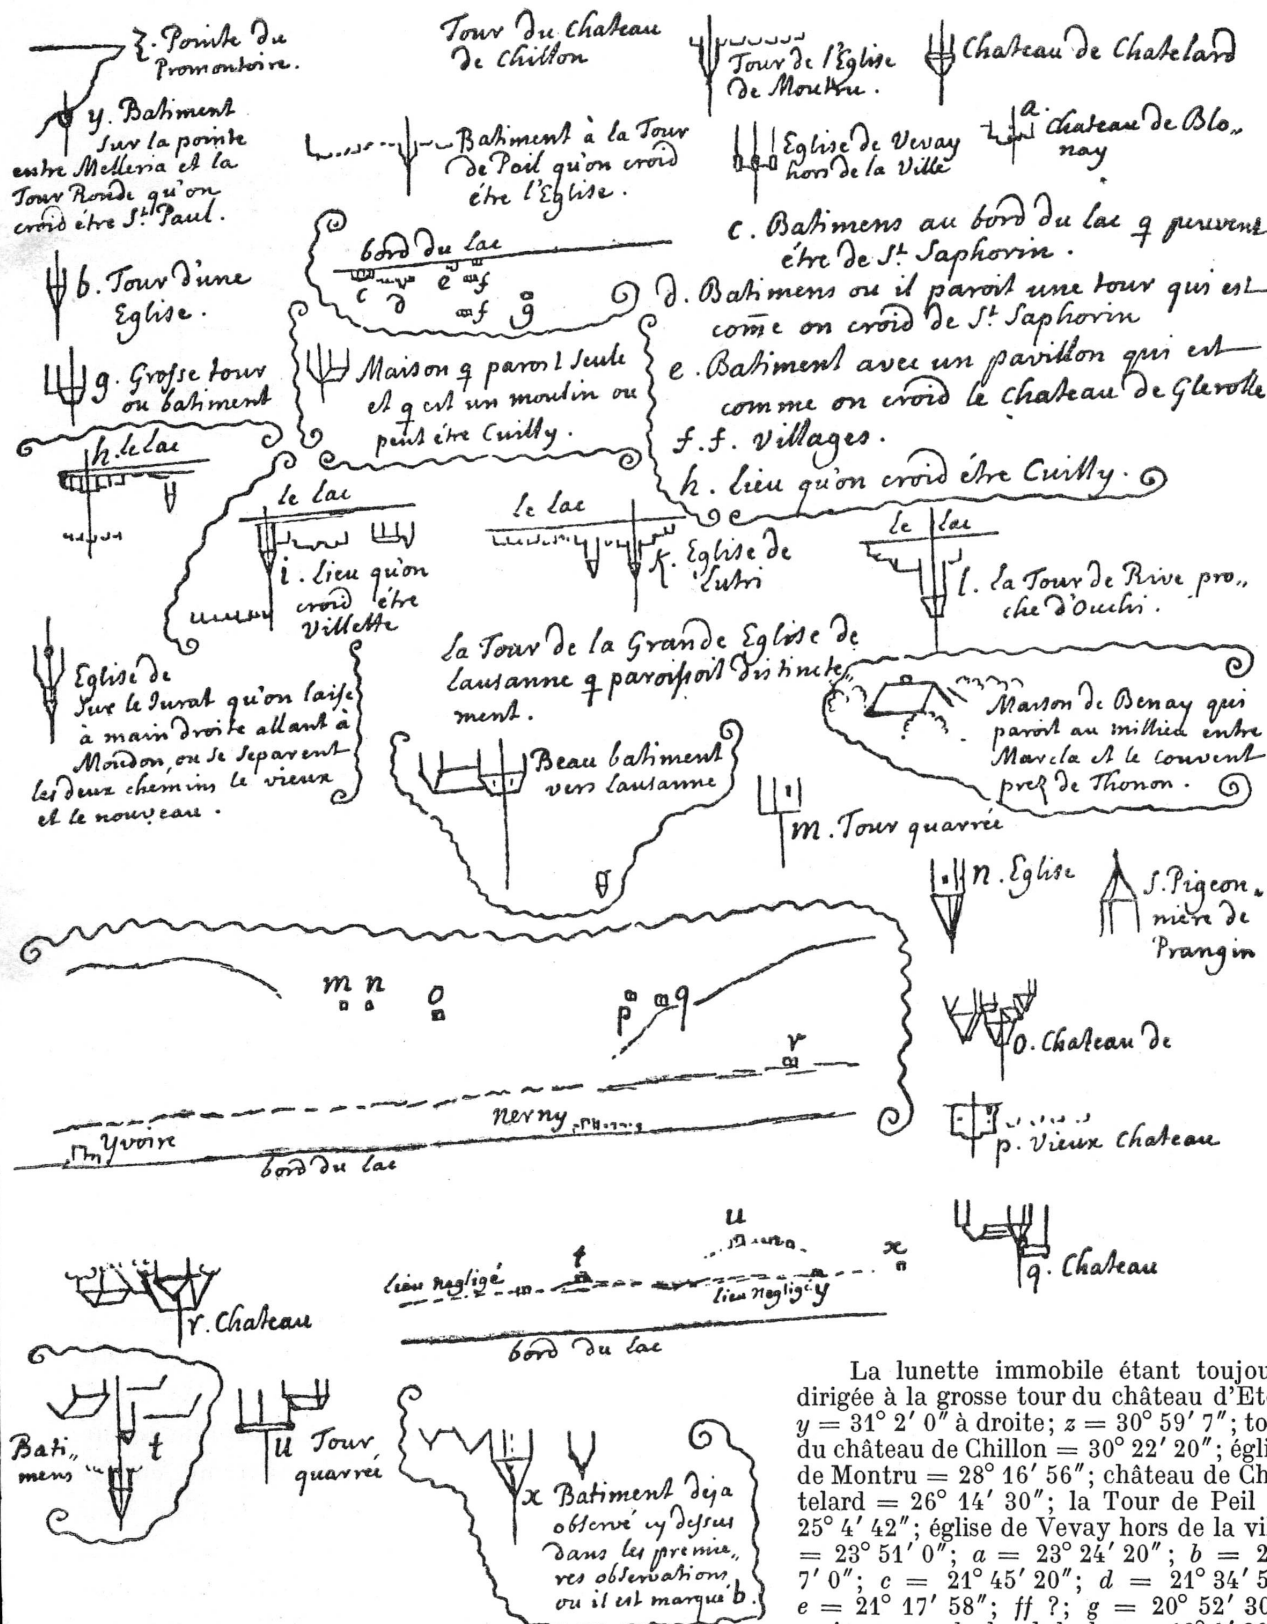 z. Pointe du
Promontoire.
y. Batiment
sur la pointe
entre Melleria et la
Tour Ronde qu'on
croid être St. Paul.
Tour du Chateau
de Chillon
Tour de l'Eglise
de Montru.
Chateau de Chatelard
Batiment à la Tour
de Peil qu'on croid
être l'Eglise.
Eglise de Vevay
hors de la Ville
a. Chateau de Blo„
nay
b. Tour d'une
Eglise.
bord du lac
c
d
e
f
f
g
c. Batimens au bord du lac q peuvent
être de St. Saphorin.
d. Batimens ou il paroit une tour qui est
come on croid de St. Saphorin
e. Batiment avec un pavillon qui est
comme on croid le Chateau de Glerolle
f. f. villages.
h. lieu qu'on croid être Cuilly.
g. Grosse tour
ou batiment
Maison q paroit seule
et q est un moulin ou
peut être Cuilly.
h. le lac
le lac
i. lieu qu'on
croid être
villette
le lac
k. Eglise de
Lutri
le lac
l. la Tour de Rive pro„
che d'Ouchi.
Eglise de
sur le Jurat qu'on laisse
à main droite allant à
Moudon, ou se separent
les deux chemins le vieux
et le nouveau.
la Tour de la Grande Eglise de
Lausanne q paroissoit distincte„
ment.
Beau batiment
vers lausanne
Maison de Benay qui
paroit au millieu entre
Marcla et le couvent
prez de Thonon.
m. Tour quarrée
n. Eglise
s. Pigeon„
niere de
Prangin
m n
o
p
q
r
Yvoire
nerny
bord du lac
o. Chateau de
p. vieux Chateau
q. Chateau
r. Chateau
lieu negligé
t
u
x
lieu negligé
y
bord du lac
Bati„
mens
t
u Tour
quarrée
x Batiment deja
observé cy dessus
dans les premie„
res observations
ou il est marqué b.
La lunette immobile étant toujou
dirigée à la grosse tour du château d'Et
y = 31° 2′ 0″ à droite; z = 30° 59′ 7″; to
du château de Chillon = 30° 22′ 20″; égli
de Montru = 28° 16′ 56″; château de Ch
telard = 26° 14′ 30″; la Tour de Peil
25° 4′ 42″; église de Vevay hors de la vi
= 23° 51′ 0″; a = 23° 24′ 20″; b = 2
7′ 0″; c = 21° 45′ 20″; d = 21° 34′ 5
e = 21° 17′ 58″; ff ?; g = 20° 52′ 30